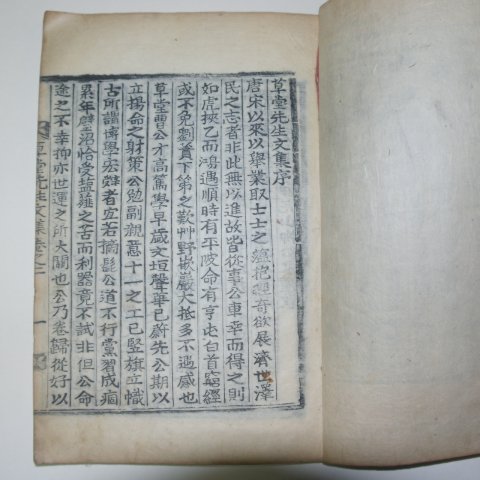 草堂先生文集序
唐宋以來以舉業取士士之蘊抱瓌奇欲展濟世澤
民之志者非此無以進故皆從事公車幸而得之則
如虎挾乙而鴻遇順時有平陂命有亨屯白首窮經
或不免劉蕡下第之歎艸野嵌巖大抵多不遇感也
草堂曺公才高篤學早歲文垣聲華已蔚先公期以
立揚命之射策公勉副親意十一之工已竪旗立幟
古所謂博學宏辭者宜若摘髭公道不行黨習成痼
累年壁沼恰受虀鹽之苦而利器竟不試非但公命
途之不幸抑亦世運之所大關也公乃卷歸從好以
草堂先生文集卷之一